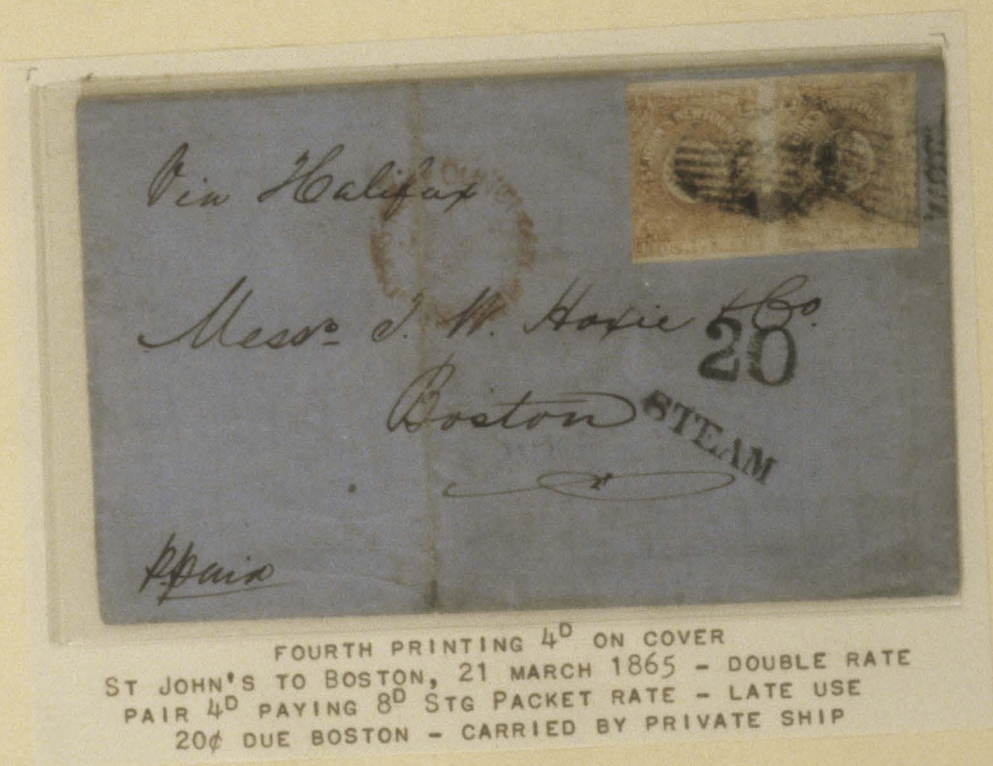 Via Halifax
Messrs J. W. Hoxie & Co.
20
Boston
STEAM
p.paid
FOURTH PRINTING 4D ON COVER
ST JOHN'S TO BOSTON, 21 MARCH 1865 – DOUBLE RATE
PAIR 4D PAYING 8D STG PACKET RATE – LATE USE
20¢ DUE BOSTON – CARRIED BY PRIVATE SHIP